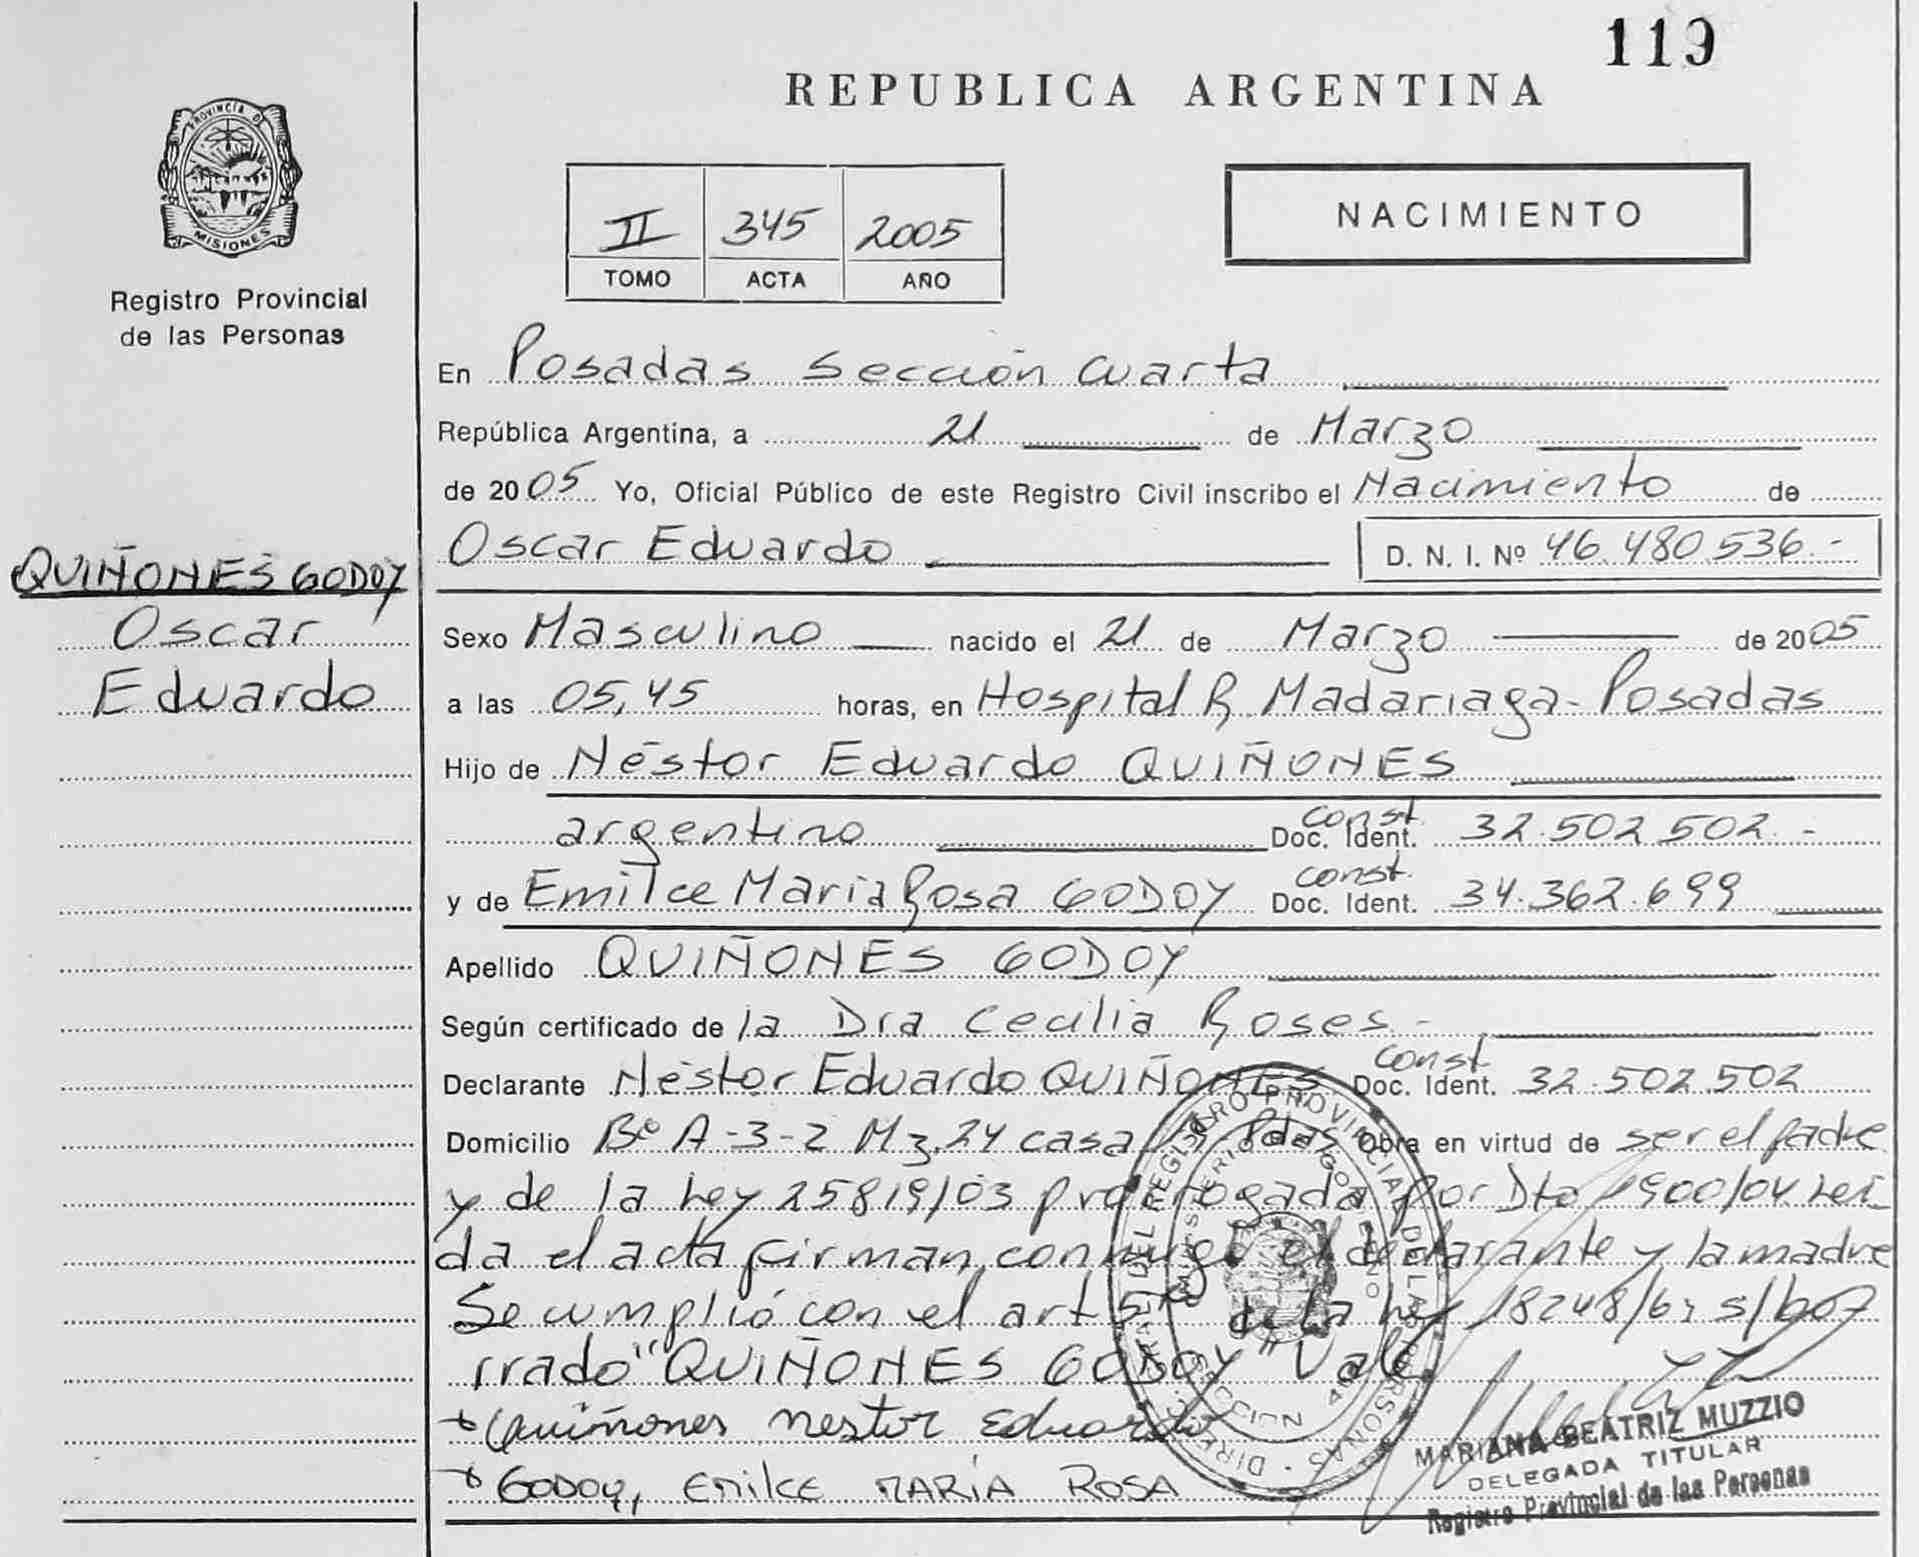 119
REPUBLICA ARGENTINA
PROVINCIA DE
MISIONES
Registro Provincial
de las Personas
II 345 2005
TOMO ACTA AÑO
NACIMIENTO
En Posadas Sección Cuarta
República Argentina, a 21 de Marzo
de 2005 Yo, Oficial Público de este Registro Civil inscribo el Nacimiento de
Oscar Eduardo D. N. I. Nº 46.480.536.-
QUIÑONES GODOY
Oscar
Eduardo
Sexo Masculino nacido el 21 de Marzo de 2005
a las 05,45 horas, en Hospital R. Madariaga-Posadas
Hijo de Néstor Eduardo QUIÑONES
argentino const. Doc. Ident. 32.502.502.-
y de Emilce María Rosa GODOY const. Doc. Ident. 34.362.699
Apellido QUIÑONES GODOY
Según certificado de la Dra Cecilia Roses-
Declarante Néstor Eduardo QUIÑONES const Doc. Ident. 32.502.502
Domicilio Bº A-3-2 Mz.24 casa Pdas Obra en virtud de ser el padre
y de la Ley 25819/03 prorrogada por Dto 1900/04 Leí-
da el acta firman conmigo el declarante y la madre
Se cumplió con el art 5º de la ley 18248/69 s/bo
rrado "QUIÑONES GODOY" Vale
Quiñones nestor Eduardo
GODOY, EMILCE MARÍA ROSA
DIRECCION DEL REGISTRO PROVINCIAL DE LAS PERSONAS
MINISTERIO DE GOBIERNO
MARIANA BEATRIZ MUZZIO
DELEGADA TITULAR
Registro Provincial de las Personas